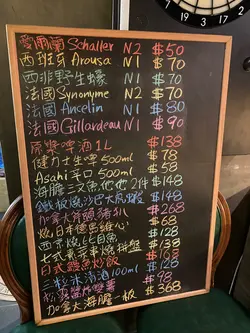 愛爾蘭 Schaller N2 $50
西班牙 Arousa N1 $70
西非野生蠔 N1 $70
法國 Synonyme N2 $70
法國 Ancelin N1 $80
法國 Gillardeau N1 $90
原漿啤酒 1L $138
健力士生啤 500ml $78
Asahi 平口 500ml $58
海膽三文魚他他 2件 $148
鐵板燒沙巴大虎蝦 $148
加拿大斧頭豬扒 $268
燒日本 $68
西京燒比目魚 $128
七式 串燒拼盤 $168
日式鰻魚炒飯 $128
清酒 100ml $98
松露醬 $88
加拿大海膽一板 $368